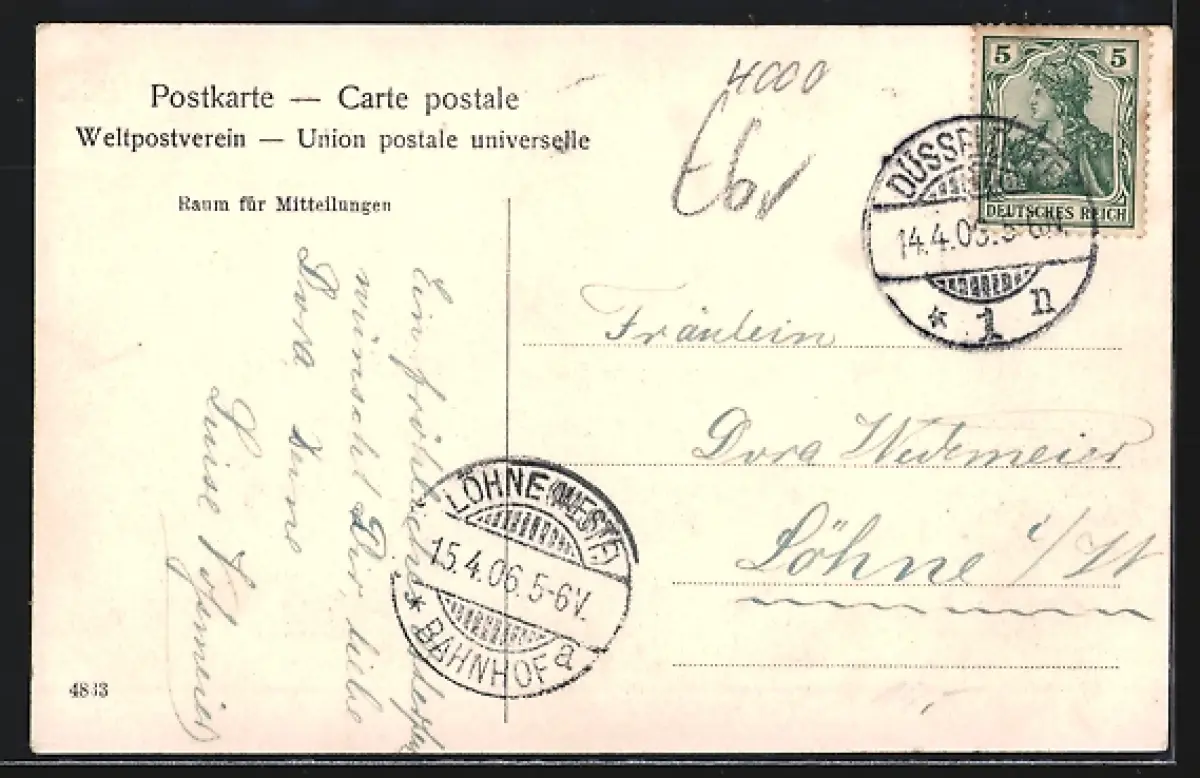 Postkarte — Carte postale
Weltpostverein — Union postale universelle
Raum für Mitteilungen
4000
5 5
DEUTSCHES REICH
DÜSSELDORF
14.4.06. 5-6N.
* 1 n
Fräulein
Dora Wedemeier
Löhne i/W
Ein fröhliches
wünscht Dir, liebe
Dora Deine
Luise
LÖHNE (WESTF)
15.4.06. 5-6V.
* BAHNHOF a
4833